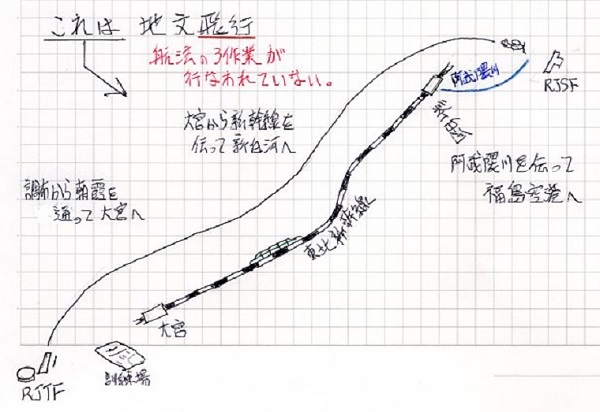 これは 地文飛行
航法の3作業が
行なわれていない。
大宮から新幹線を
伝って新白河へ
調布から朝霞を
通って大宮へ
阿武隈川
RJSF
新白河
阿武隈川を伝って
福島空港へ
東北新幹線
大宮
訓練場
RJTF